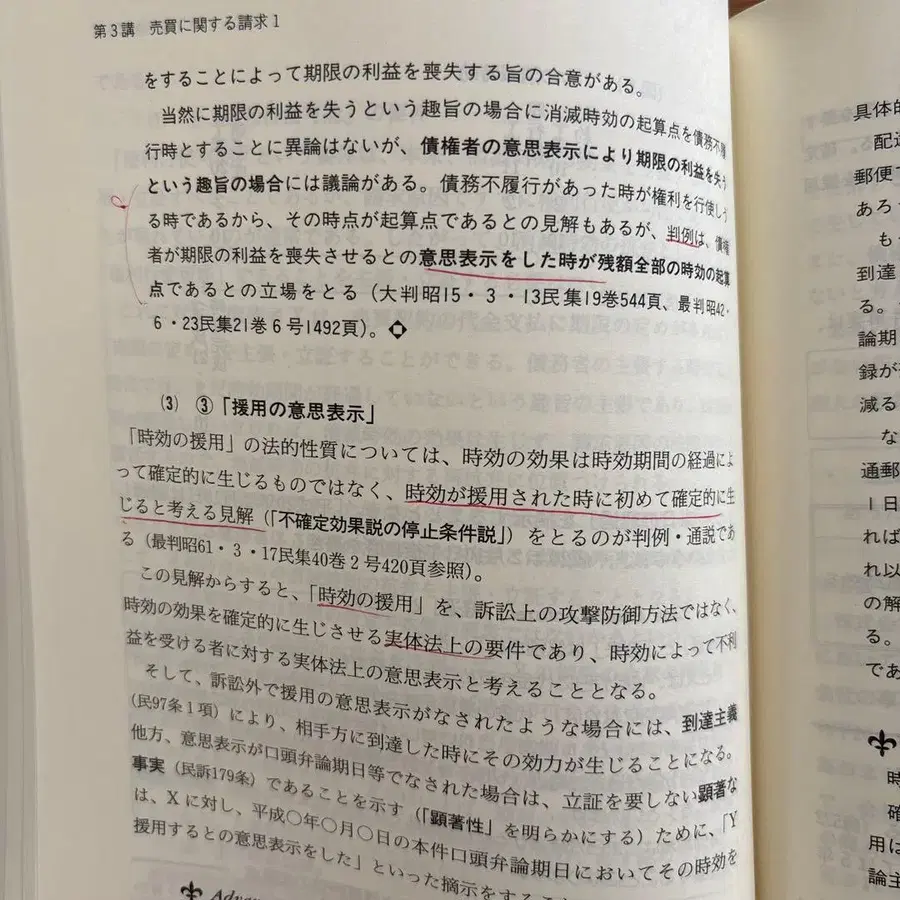 第3講　売買に関する請求1
をすることによって期限の利益を喪失する旨の合意がある。
当然に期限の利益を失うという趣旨の場合に消滅時効の起算点を債務不履
行時とすることに異論はないが、債権者の意思表示により期限の利益を失う
という趣旨の場合には議論がある。債務不履行があった時が権利を行使しう
る時であるから、その時点が起算点であるとの見解もあるが、判例は、債権
者が期限の利益を喪失させるとの意思表示をした時が残額全部の時効の起算
点であるとの立場をとる（大判昭15・3・13民集19巻544頁、最判昭42・
6・23民集21巻6号1492頁）。
(3)　③「援用の意思表示」
「時効の援用」の法的性質については、時効の効果は時効期間の経過によ
って確定的に生じるものではなく、時効が援用された時に初めて確定的に生
じると考える見解（「不確定効果説の停止条件説」）をとるのが判例・通説であ
る（最判昭61・3・17民集40巻2号420頁参照）。
この見解からすると、「時効の援用」を、訴訟上の攻撃防御方法ではなく、
時効の効果を確定的に生じさせる実体法上の要件であり、時効によって不利
益を受ける者に対する実体法上の意思表示と考えることとなる。
そして、訴訟外で援用の意思表示がなされたような場合には、到達主義
（民97条1項）により、相手方に到達した時にその効力が生じることになる。
他方、意思表示が口頭弁論期日等でなされた場合は、立証を要しない顕著な
事実（民訴179条）であることを示す（「顕著性」を明らかにする）ために、「Y
は、Xに対し、平成〇年〇月〇日の本件口頭弁論期日においてその時効を
援用するとの意思表示をした」といった摘示をする
Advan
具体的
配達
郵便で
あろ
も
到達
る。
論期
録が
減る
な
通郵
1日
れば
れ以
の解
る。
であ
時
確
用は
論主